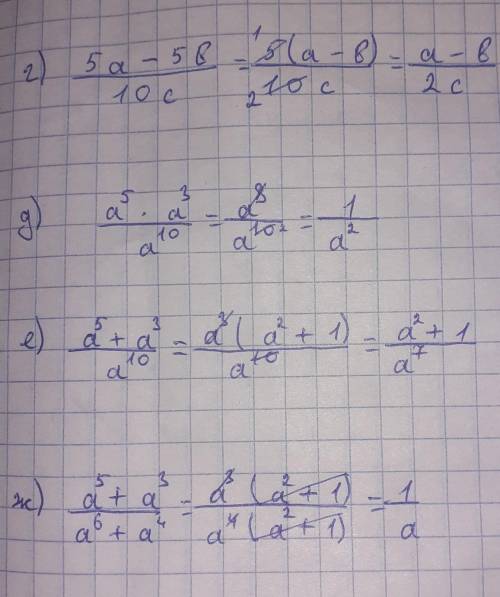 г) (5a - 5b)/(10c) = (¹5(a - b))/(₂10c) = (a - b)/(2c)
д) (a⁵ · a³)/a¹⁰ = a⁸/a¹⁰ ² = 1/a²
е) (a⁵ + a³)/a¹⁰ = (a³(a² + 1))/a¹⁰ = (a² + 1)/a⁷
ж) (a⁵ + a³)/(a⁶ + a⁴) = (a³(a² + 1))/(a⁴(a² + 1)) = 1/a